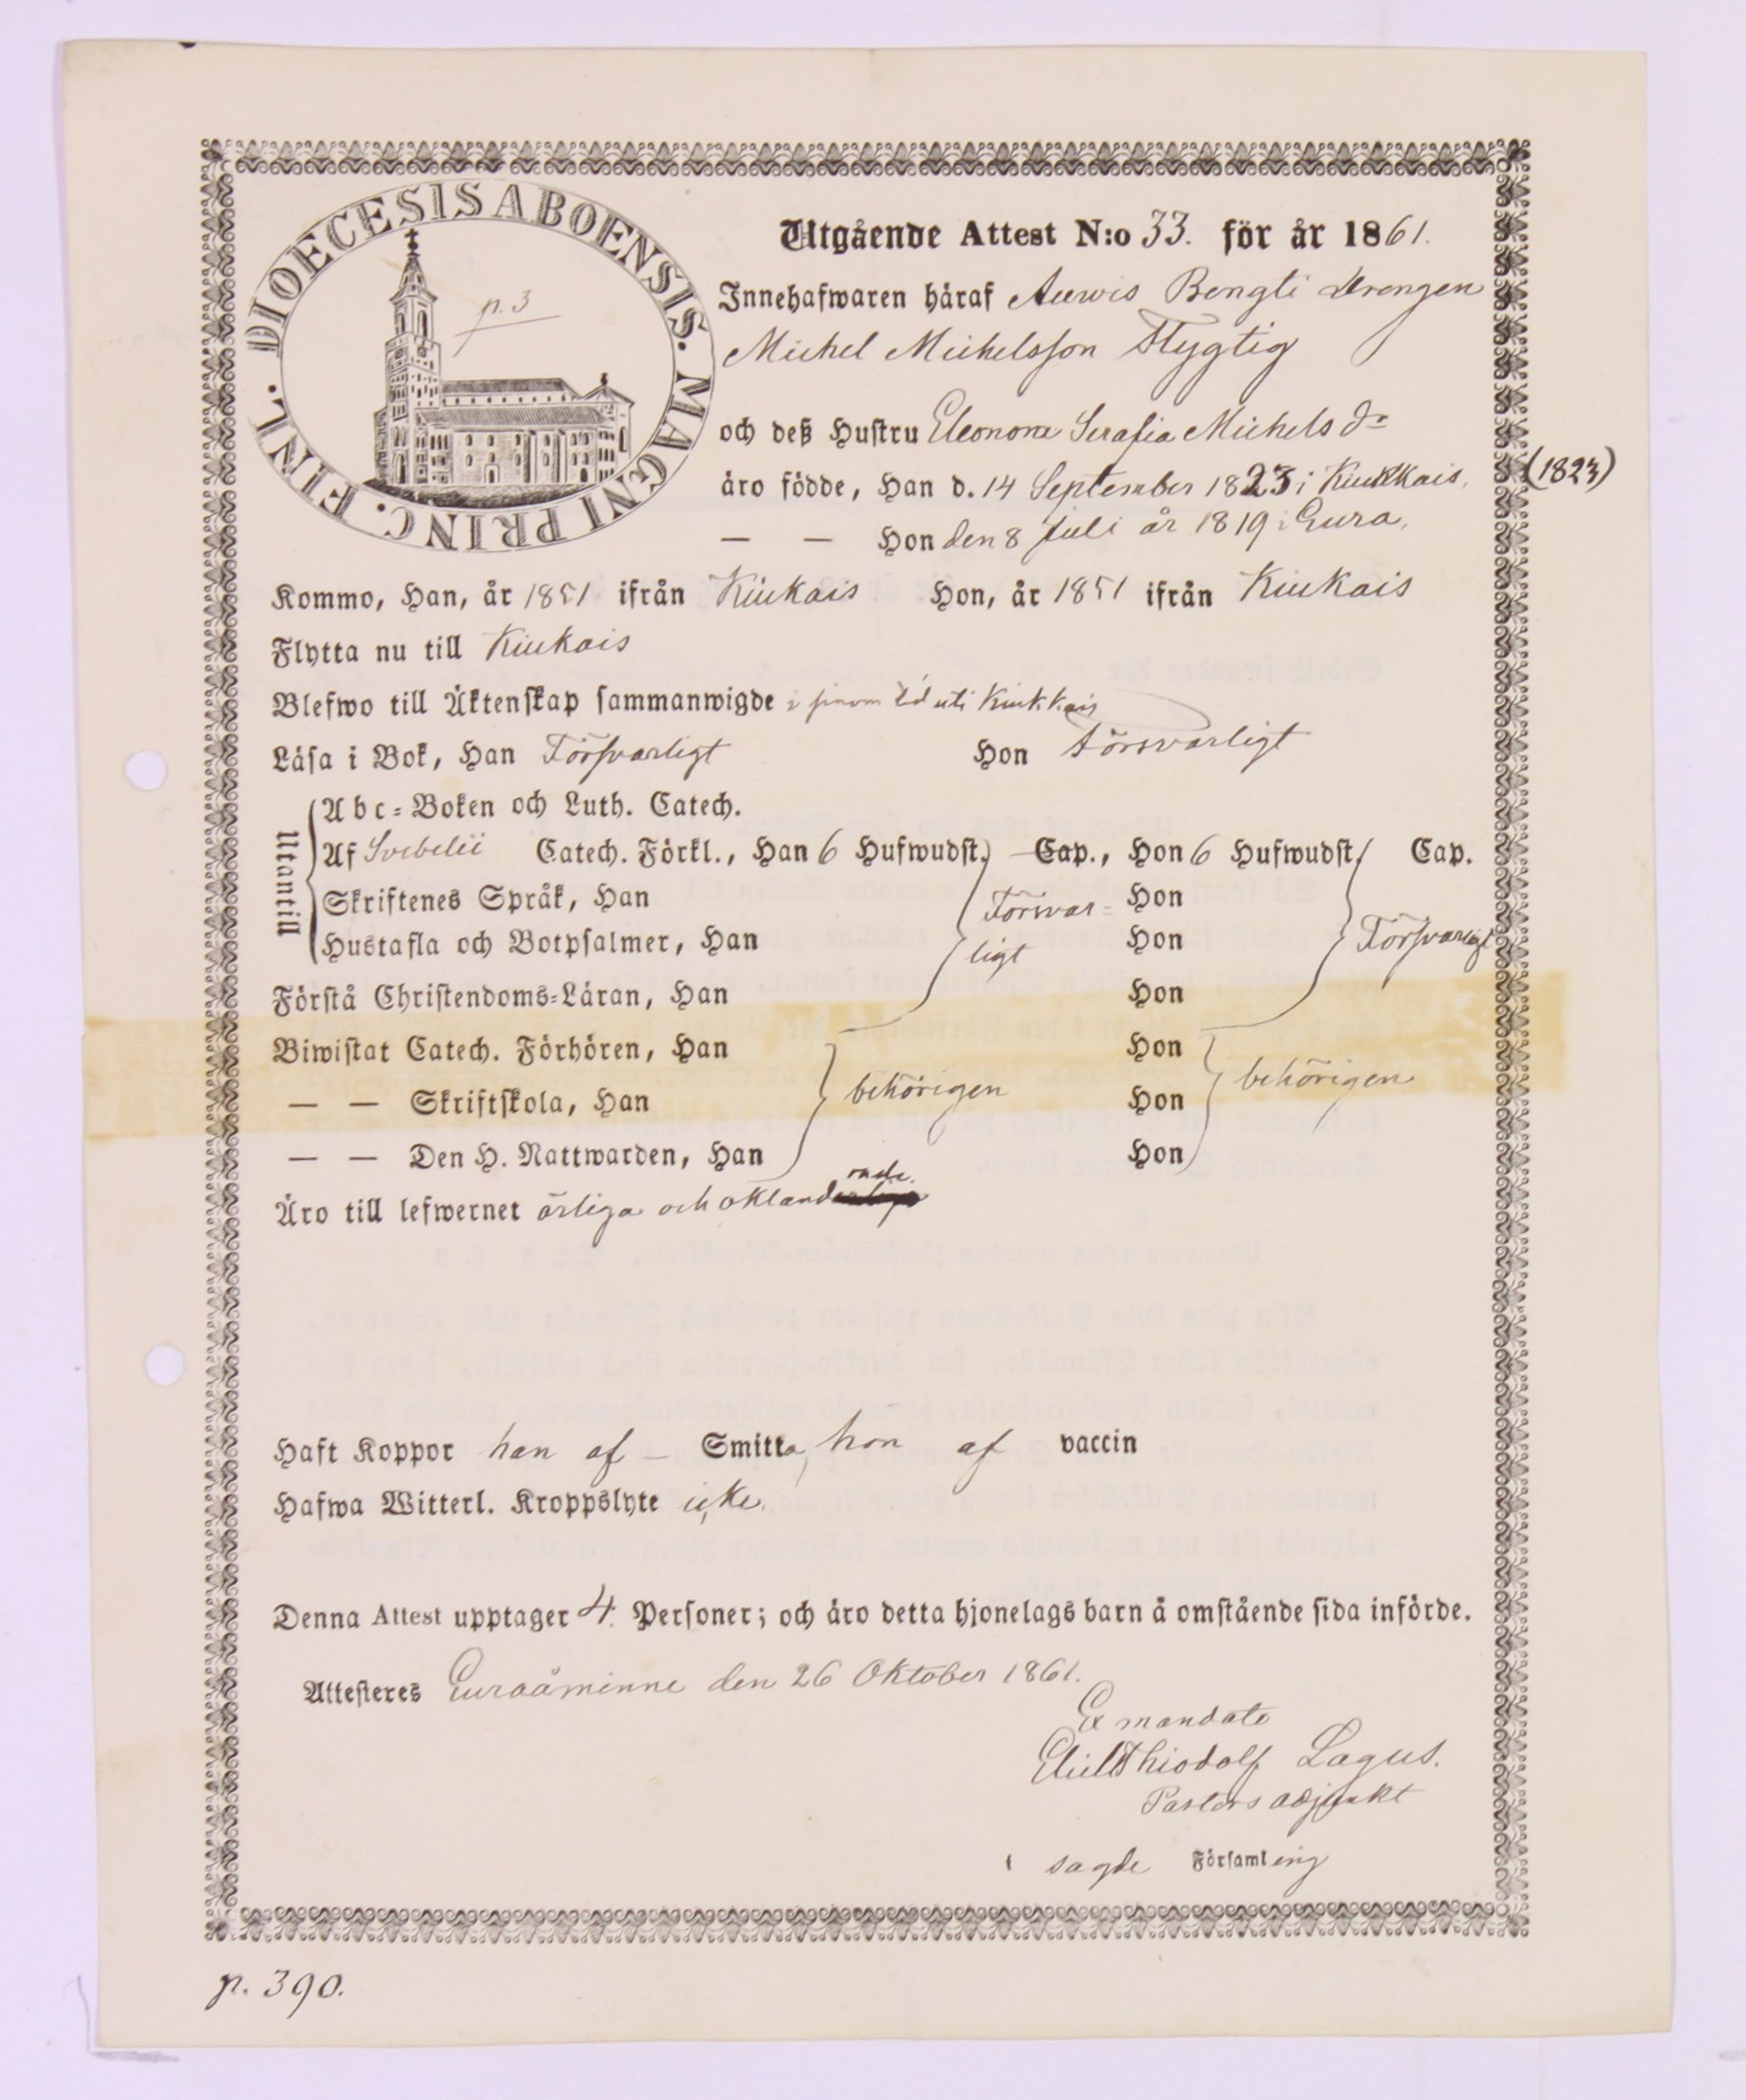 DIOECESIS ABOENSIS. MAGNI PRINC. FINL.
p. 3
Utgående Attest N:o 33. för år 1861.
Innehafwaren häraf Auwis Bengti drengen
Michel Michelsson Flygtig
och deß Hustru Eleonora Serafia Michels dr
äro födde, Han d. 14 September 1823 i Kiukkais. (1823)
— — Hon den 8 Juli år 1819 i Eura.
Kommo, Han, år 1851 ifrån Kiukais Hon, år 1851 ifrån Kiukais
Flytta nu till Kiukais
Blefwo till Äktenskap sammanwigde i sinom tid uti Kiukkais
Läsa i Bok, Han Försvarligt Hon Försvarligt
Utantill
Abc-Boken och Luth. Catech.
Af Svebelii Catech. Förkl., Han 6 Hufwudst. Cap., Hon 6 Hufwudst. Cap.
Skriftenes Språk, Han Försvar- Hon
Hustafla och Botpsalmer, Han ligt Hon Försvarligt
Förstå Christendoms-Läran, Han Hon
Biwistat Catech. Förhören, Han Hon
— — Skriftskola, Han behörigen Hon behörigen
— — Den H. Nattwarden, Han Hon
Äro till lefwernet ärliga och oklandrade.
Haft Koppor han af — Smitta, hon af vaccin
Hafwa Witterl. Kroppslyte icke.
Denna Attest upptager 4. Personer; och äro detta hjonelags barn å omstående sida införde.
Attesteres Euraåminne den 26 Oktober 1861.
Ex mandato
Thiodolf Lagus.
Pastors adjunkt
i sagde Församling
p. 390.